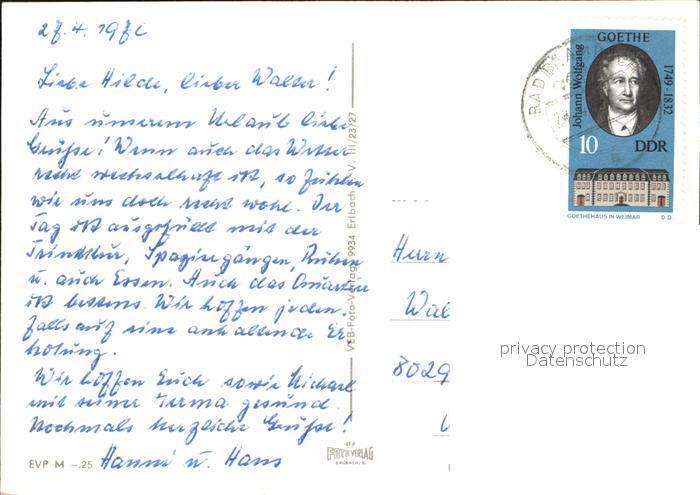 27.4.197
Liebe Hilde, lieber Walter!
Aus unserem Urlaub liebe
Grüße! Wenn auch das Wetter
recht wechselhaft ist, so fühlen
wir uns doch recht wohl. Der
Tag ist ausgefüllt mit der
Trinkkur, Spaziergängen, Ruhen
u. auch Essen. Auch das Quartier
ist bestens. Wir hoffen jeden-
falls auf eine anhaltende Er-
holung.
Wir hoffen Euch sowie Michael
mit seiner gesund.
Nochmals herzliche Grüße!
Hanni u. Hans
EVP M -.25
VEB-Foto-Verlag 9934 Erlbach V. III/23/27
VEB
FOTO VERLAG
ERLBACH/V.
BAD
GOETHE
Johann Wolfgang
1749-1832
10 DDR
GOETHEHAUS IN WEIMAR D.D.
Herrn
Wal
8029
privacy protection
Datenschutz